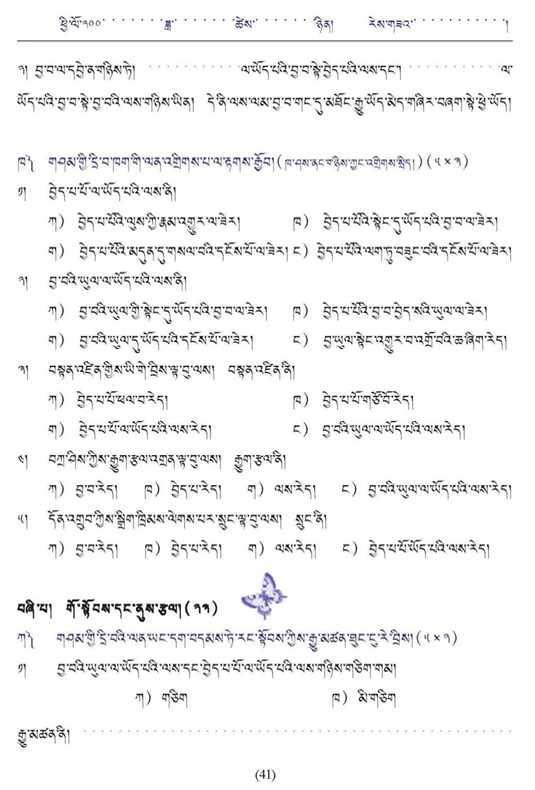 ཕྱི་ལོ་༢༠༠ ་་་་་་་་ ཟླ་ ་་་་་་་་ ཚེས་ ་་་་་་་་ ཉིན། རེས་གཟའ་ ་་་་་་་་་་་།
༢། བྱ་བ་ལ་དབྱེ་ན་གཉིས་ཏེ། ་་་་་་་་་་་ ལ་ཡོད་པའི་བྱ་བ་སྟེ་བྱེད་པའི་ལས་དང་། ་་་་་་་་་་་ ལ་
ཡོད་པའི་བྱ་བ་སྟེ་བྱ་བའི་ལས་གཉིས་ཡིན། དེ་ནི་ལས་ལམ་བྱ་བ་གང་དུ་མཐོང་རྒྱུ་ཡོད་མེད་གཞིར་བཞག་སྟེ་ཕྱེ་ཡོད།
ཁ༽ གཤམ་གྱི་དྲི་བ་ཁག་གི་ལན་འགྲིགས་པ་ལ་རྟགས་རྒྱོབ། (ཁ་ཤས་ནང་གཉིས་ཀྱང་འགྲིགས་སྲིད།) (༥ × ༢)
༡། བྱེད་པ་པོ་ལ་ཡོད་པའི་ལས་ནི།
ཀ) བྱེད་པ་པོའི་ལུས་ཀྱི་རྣམ་འགྱུར་ལ་ཟེར། ཁ) བྱེད་པ་པོའི་སྟེང་དུ་ཡོད་པའི་བྱ་བ་ལ་ཟེར།
ག) བྱེད་པ་པོའི་མདུན་དུ་གསལ་བའི་དངོས་པོ་ལ་ཟེར། ང) བྱེད་པ་པོའི་ལག་ཏུ་བཟུང་བའི་དངོས་པོ་ལ་ཟེར།
༢། བྱ་བའི་ཡུལ་ལ་ཡོད་པའི་ལས་ནི།
ཀ) བྱ་བའི་ཡུལ་གྱི་སྟེང་དུ་ཡོད་པའི་བྱ་བ་ལ་ཟེར། ཁ) བྱེད་པ་པོའི་བྱ་བ་བྱེད་སའི་ཡུལ་ལ་ཟེར།
ག) བྱ་བའི་ཡུལ་དུ་ཡོད་པའི་དངོས་པོ་ལ་ཟེར། ང) བྱ་ཡུལ་སྟེང་འགྱུར་བ་འགྲོ་བའི་ཆ་ཞིག་རེད།
༣། བསྟན་འཛིན་གྱིས་ཡི་གེ་བྲིས་ལྟ་བུ་ལས། བསྟན་འཛིན་ནི།
ཀ) བྱེད་པ་པོ་ཕལ་བ་རེད། ཁ) བྱེད་པ་པོ་གཙོ་བོ་རེད།
ག) བྱེད་པ་པོ་ལ་ཡོད་པའི་ལས་རེད། ང) བྱ་བའི་ཡུལ་ལ་ཡོད་པའི་ལས་རེད།
༤། བཀྲ་ཤིས་ཀྱིས་རྒྱུག་རྩལ་འགྲན་ལྟ་བུ་ལས། རྒྱུག་རྩལ་ནི།
ཀ) བྱ་བ་རེད། ཁ) བྱེད་པ་རེད། ག) ལས་རེད། ང) བྱ་བའི་ཡུལ་ལ་ཡོད་པའི་ལས་རེད།
༥། དོན་འགྲུབ་ཀྱིས་སྒྲིག་ཁྲིམས་ལེགས་པར་སྲུང་ལྟ་བུ་ལས། སྲུང་ནི།
ཀ) བྱ་བ་རེད། ཁ) བྱེད་པ་རེད། ག) ལས་རེད། ང) བྱེད་པ་པོ་ཡོད་པའི་ལས་རེད།
བཞི་པ། གོ་སྟོབས་དང་ནུས་རྩལ། (༢༢)
ཀ༽ གཤམ་གྱི་དྲི་བའི་ལན་ཡང་དག་བདམས་ཏེ་རང་སྟོབས་ཀྱིས་རྒྱུ་མཚན་ཐུང་ངུ་རེ་བྲིས། (༥ × ༢)
༡། བྱ་བའི་ཡུལ་ལ་ཡོད་པའི་ལས་དང་བྱེད་པ་པོ་ལ་ཡོད་པའི་ལས་གཉིས་གཅིག་གམ།
ཀ) གཅིག ཁ) མི་གཅིག
རྒྱུ་མཚན་ནི། ་་་་་་་་་་་་་་་་་་་་་་་་་་་་་་་་་་་་་་་་
(41)